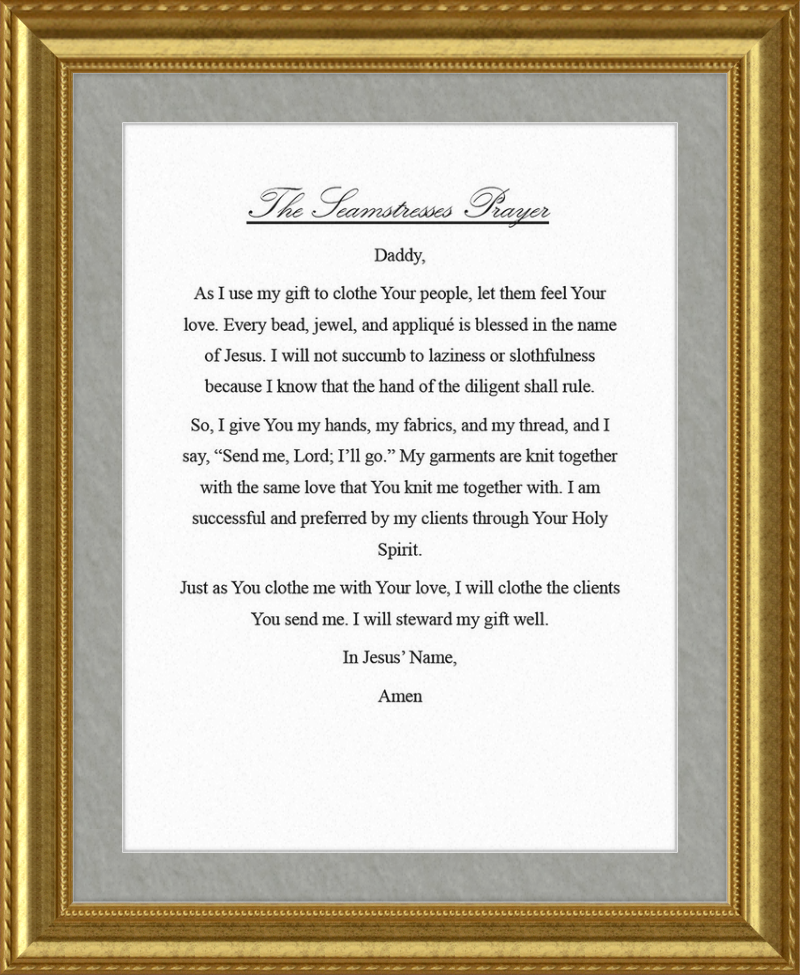 The Seamstresses Prayer
Daddy,
As I use my gift to clothe Your people, let them feel Your
love. Every bead, jewel, and appliqué is blessed in the name
of Jesus. I will not succumb to laziness or slothfulness
because I know that the hand of the diligent shall rule.
So, I give You my hands, my fabrics, and my thread, and I
say, “Send me, Lord; I’ll go.” My garments are knit together
with the same love that You knit me together with. I am
successful and preferred by my clients through Your Holy
Spirit.
Just as You clothe me with Your love, I will clothe the clients
You send me. I will steward my gift well.
In Jesus’ Name,
Amen